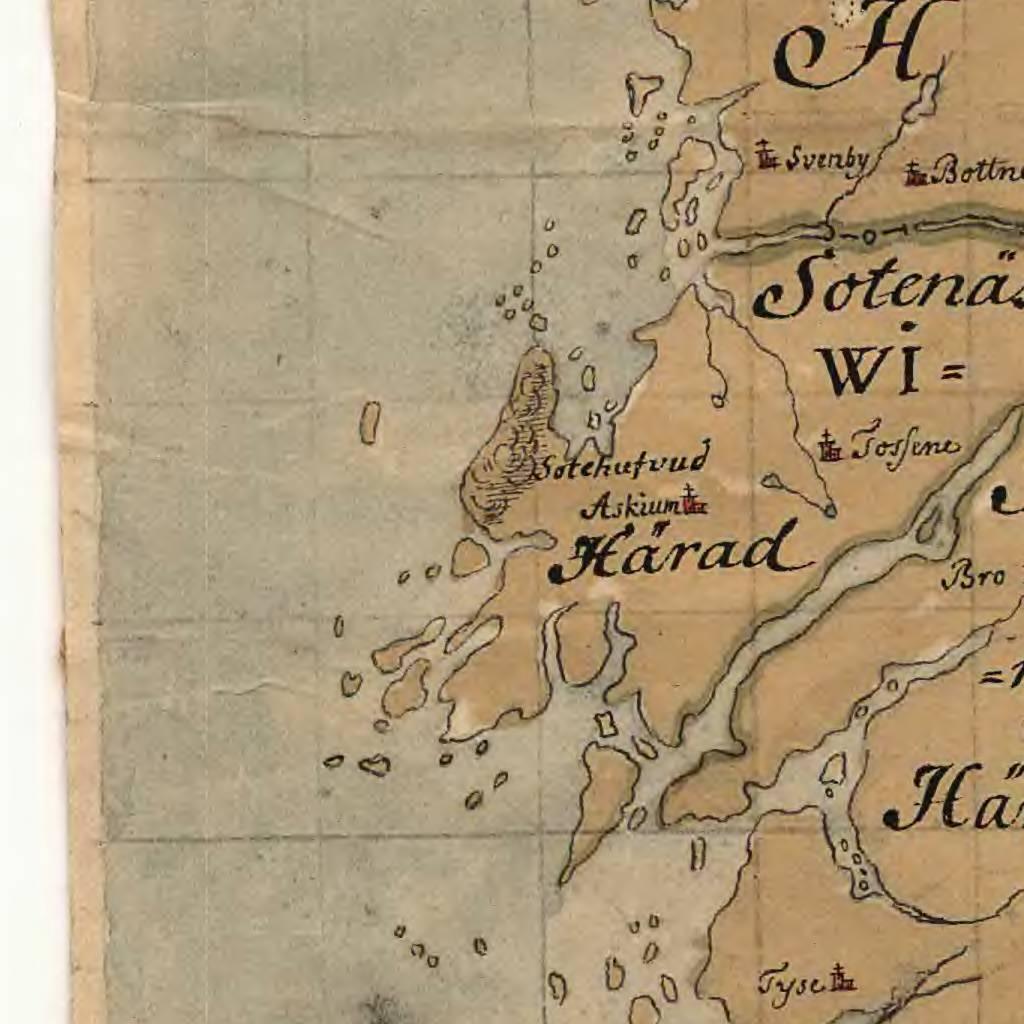 H
Svenby
Bottn
Sotenäs
WI =
Tossene
Sotehufvud
Askium
Härad
Bro
Hä
Tyse